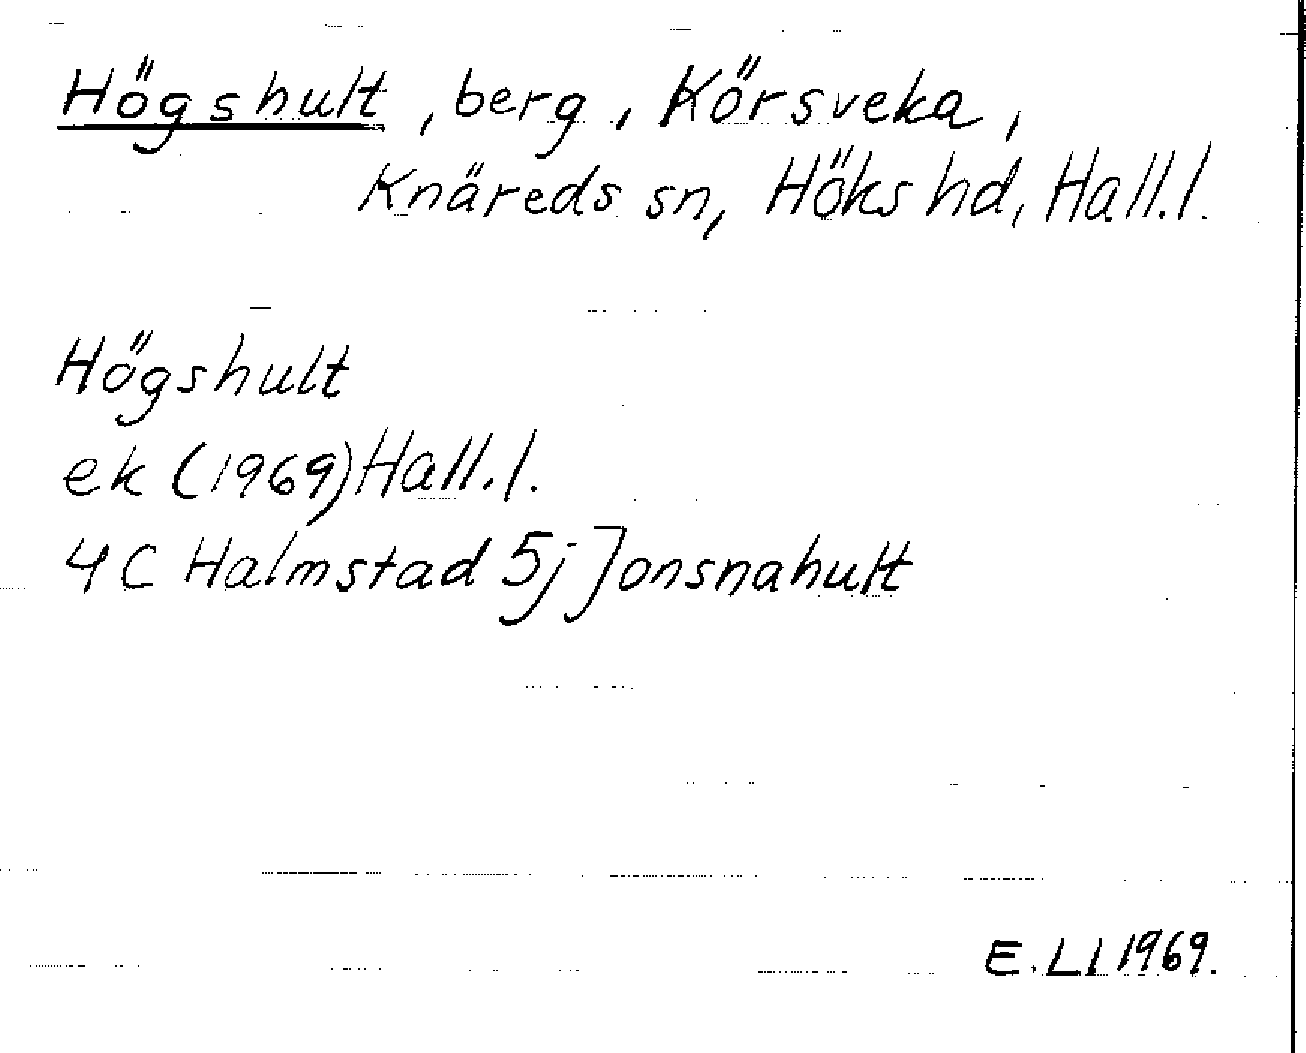 Högshult, berg, Körsveka,
Knäreds sn, Höks hd, Hall.l.
Högshult
ek (1969) Hall.l.
4C Halmstad 5j Jonsnahult
E.Ll 1969.